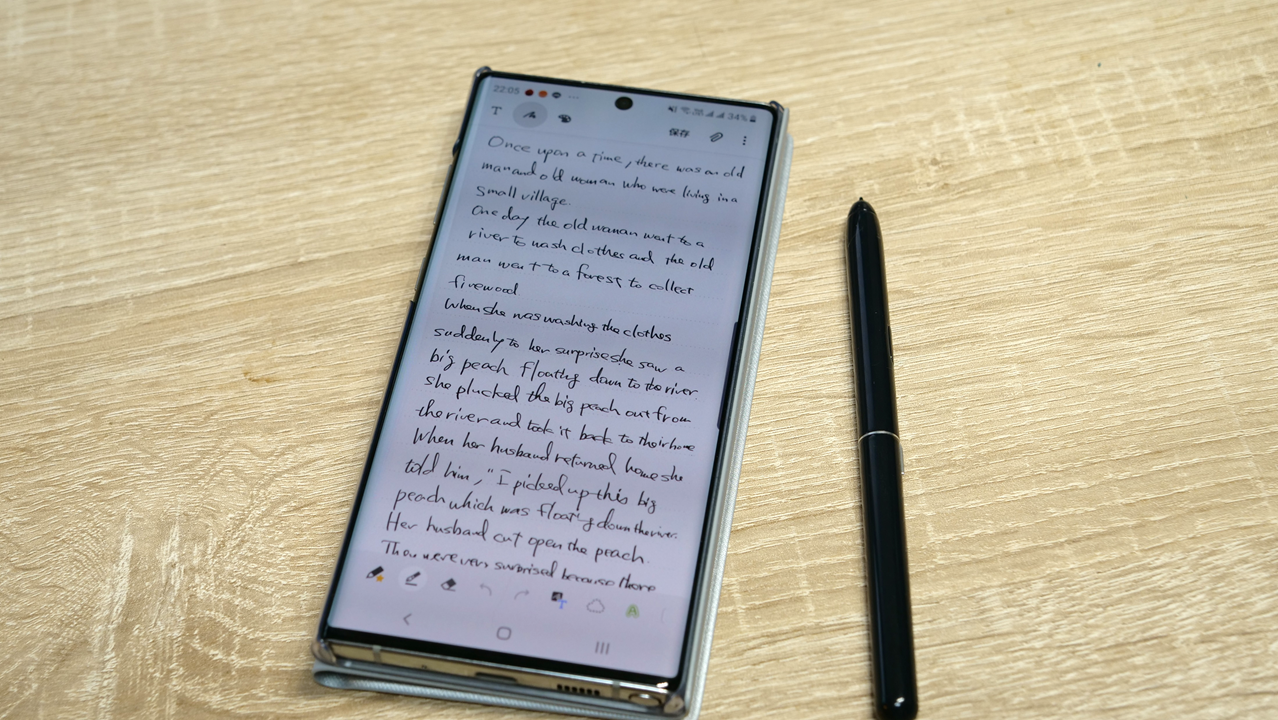 22:05 34%
T 保存
Once upon a time, there was an old
man and old woman who were living in a
small village.
One day the old woman went to a
river to wash clothes and the old
man went to a forest to collect
firewood
When she was washing the clothes
suddenly to her surprise she saw a
big peach floating down to the river.
she plucked the big peach out from
the river and took it back to their home
When her husband returned home she
told him, "I picked up this big
peach which was floating down the river.
Her husband cut open the peach.
They were very surprised because there
T
A